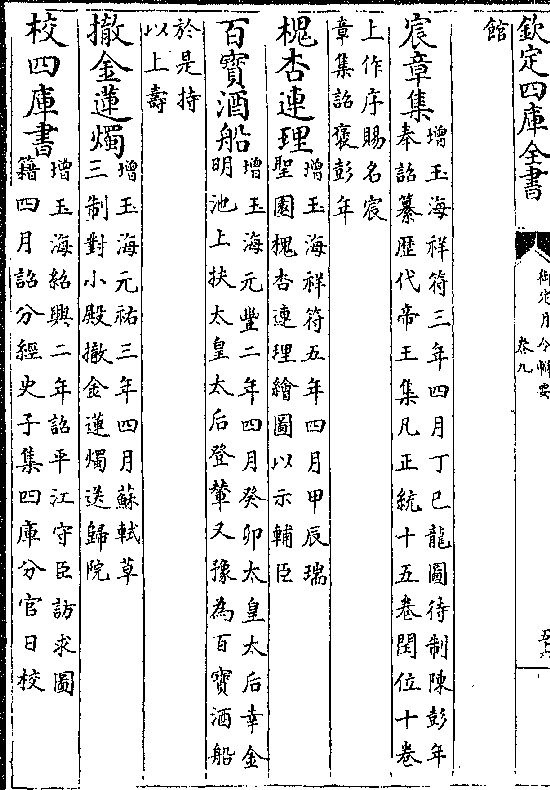 欽定四庫全書
御定月令輯要
卷九
館
宸章集增玉海祥符三年四月丁巳龍圖待制陳彭年
奉詔纂歷代帝王集凡正統十五卷閏位十卷
上作序賜名宸
章集詔褒彭年
槐杏連理增玉海祥符五年四月甲辰瑞
聖園槐杏連理繪圖以示輔臣
百寶酒船增玉海元豐二年四月癸卯太皇太后幸金
明池上扶太皇太后登輦又豫為百寶酒船
於是持
以上壽
撤金蓮燭增玉海元祐三年四月蘇軾草
三制對小殿撤金蓮燭送歸院
校四庫書增玉海紹興二年詔平江守臣訪求圖
籍四月詔分經史子集四庫分官日校